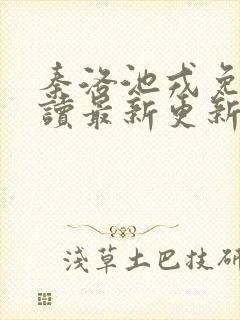 秦洛池戎免
讀最新更新
淺草土巴技研